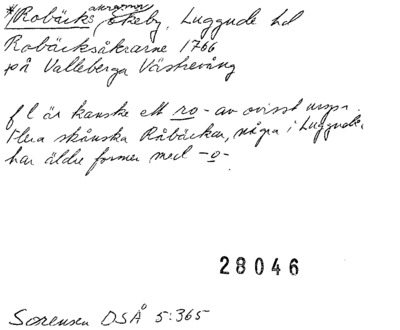 */Robäcksåkrarna, Ekeby, Luggude hd
Robäcksåkrarne 1766
på Valleberga Västrevång
f l är kanske ett ro- av ovisst urspr.
Flera skånska Råbäckar, några i Luggude,
har äldre former med -o-.
28046
Sorensen DSÅ 5:365